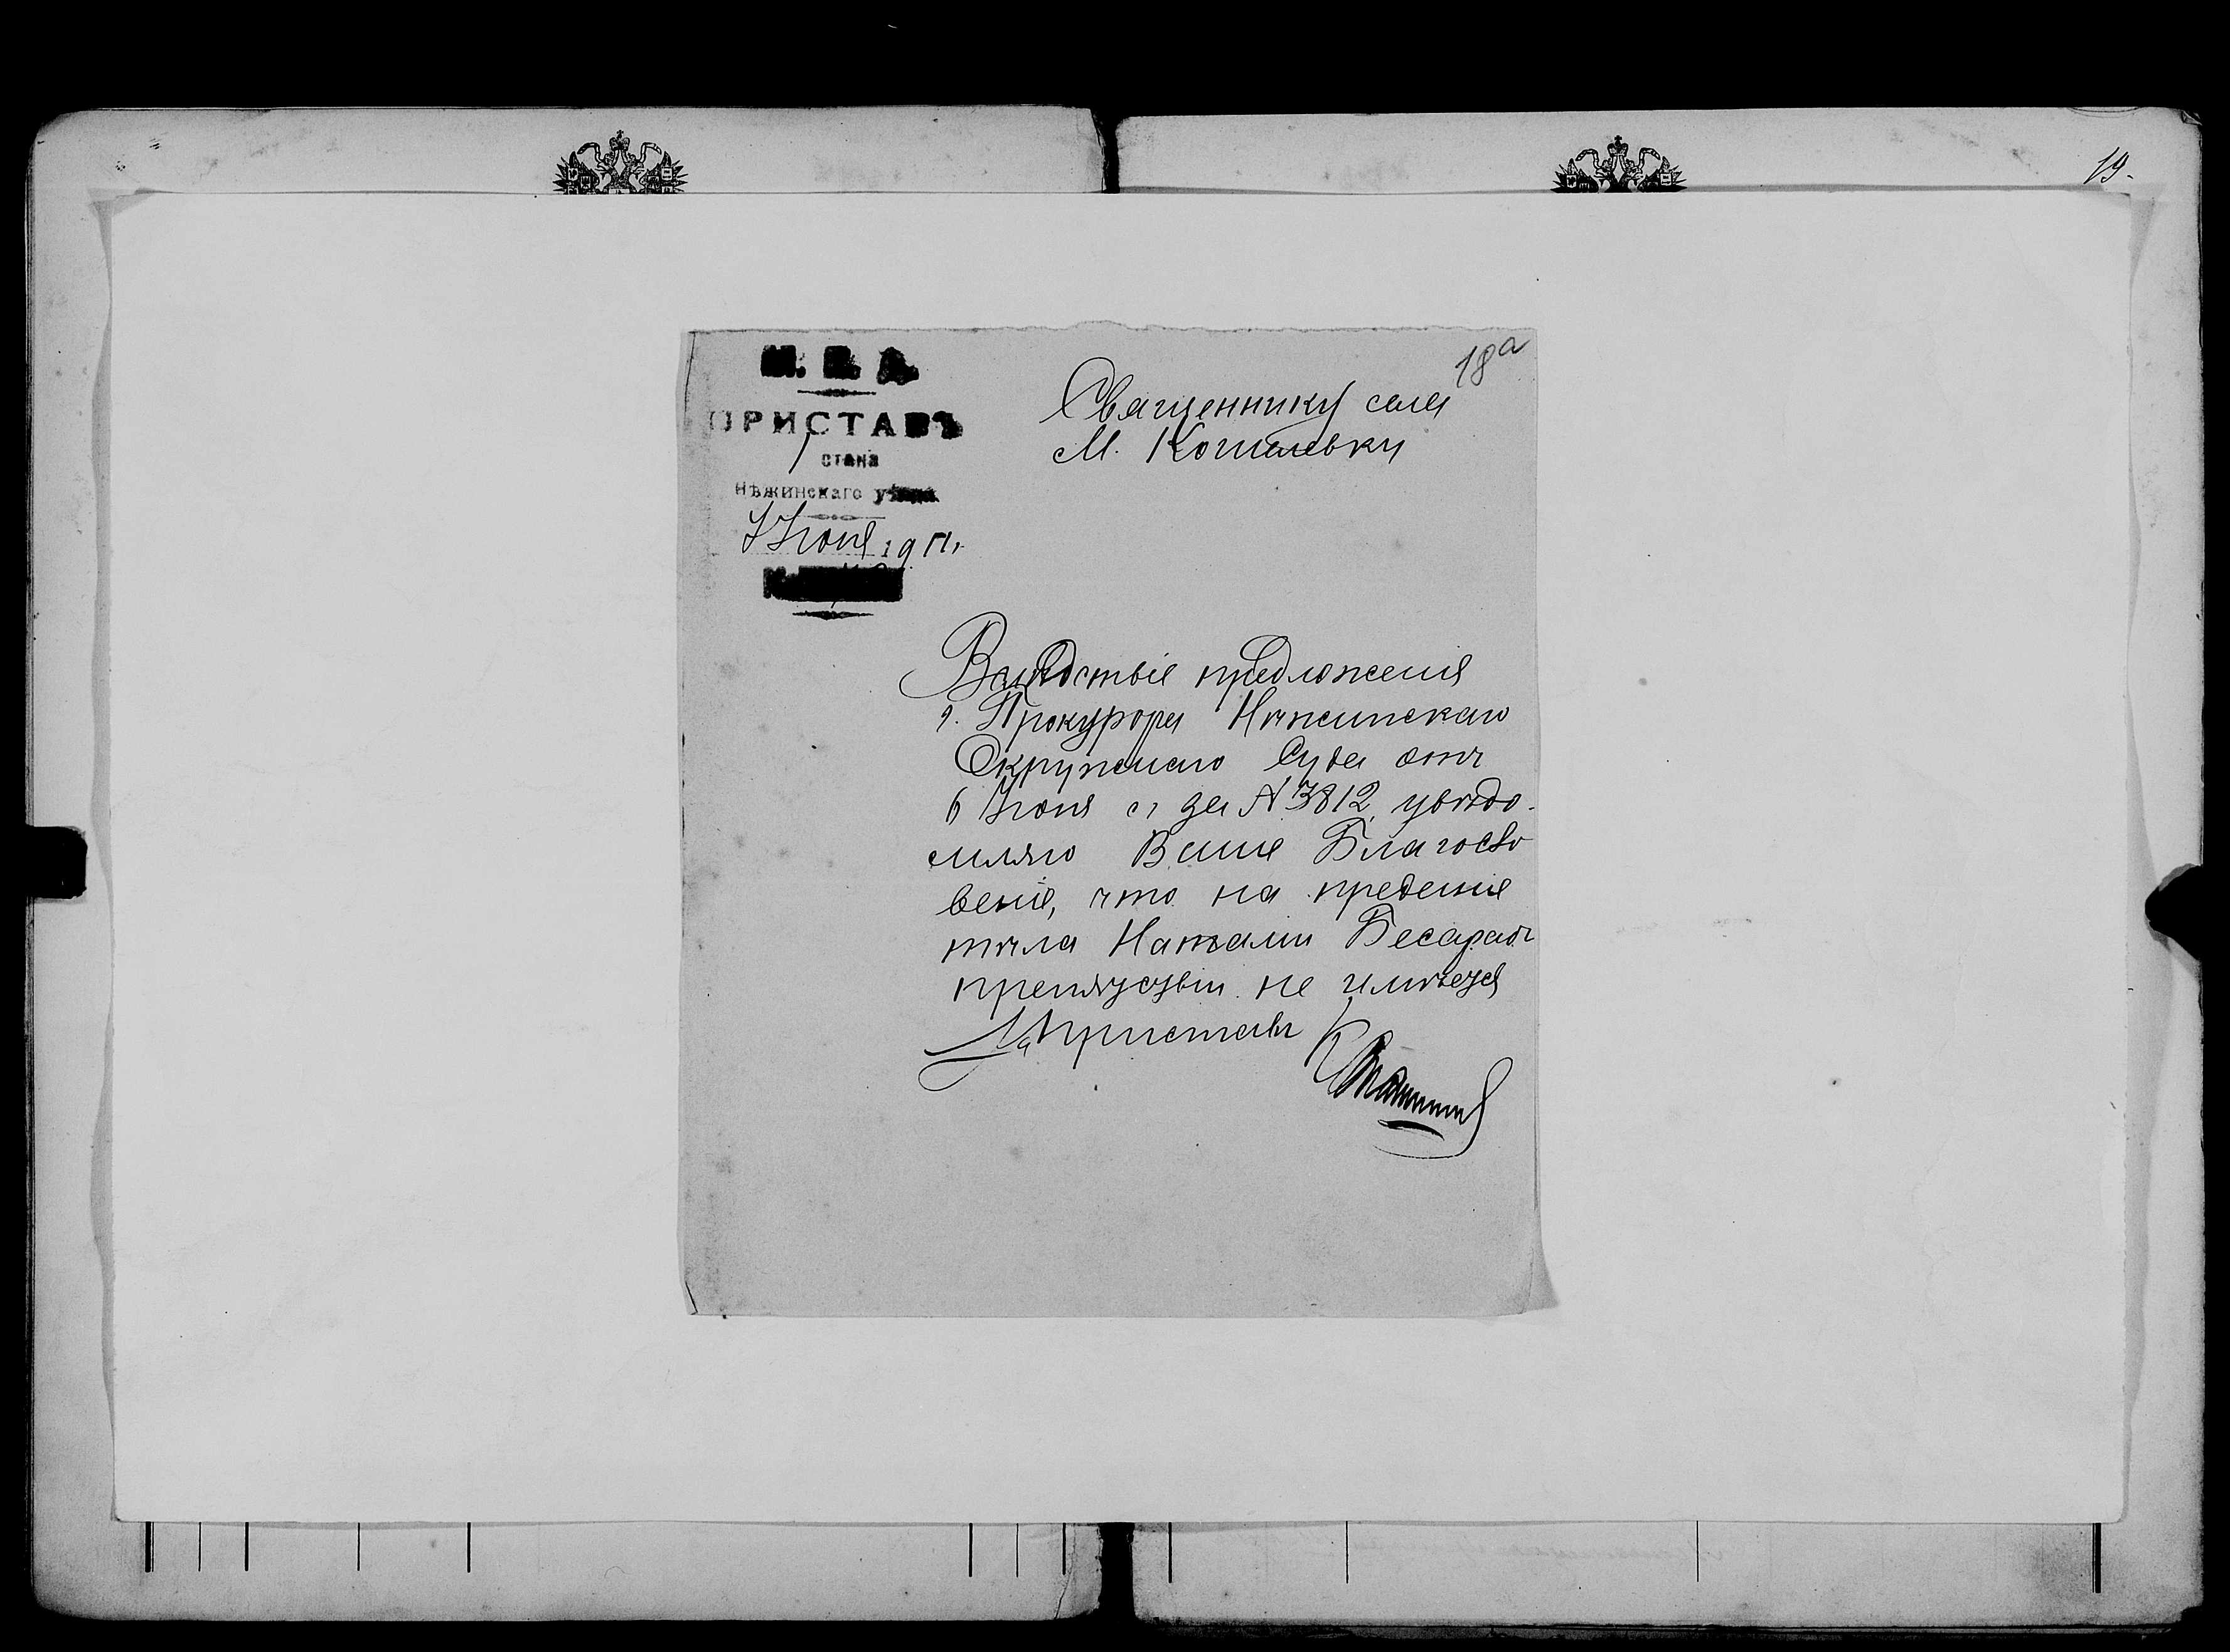 19.
18а
М. В. Д.
ПРИСТАВЪ
1 СТАНА
Нѣжинскаго уѣзда
Июня 1911.
Священнику села
М. Кошелевки
Вслѣдствіе предложенія
г. Прокурора Нѣжинскаго
Окружнаго Суда отъ
6 Июня с г за № 3812, увѣдо-
мляю Ваше Благосло
веніе, что на преданіе
тѣла Наталии Бесараб
препятствій не имѣется
Приставъ